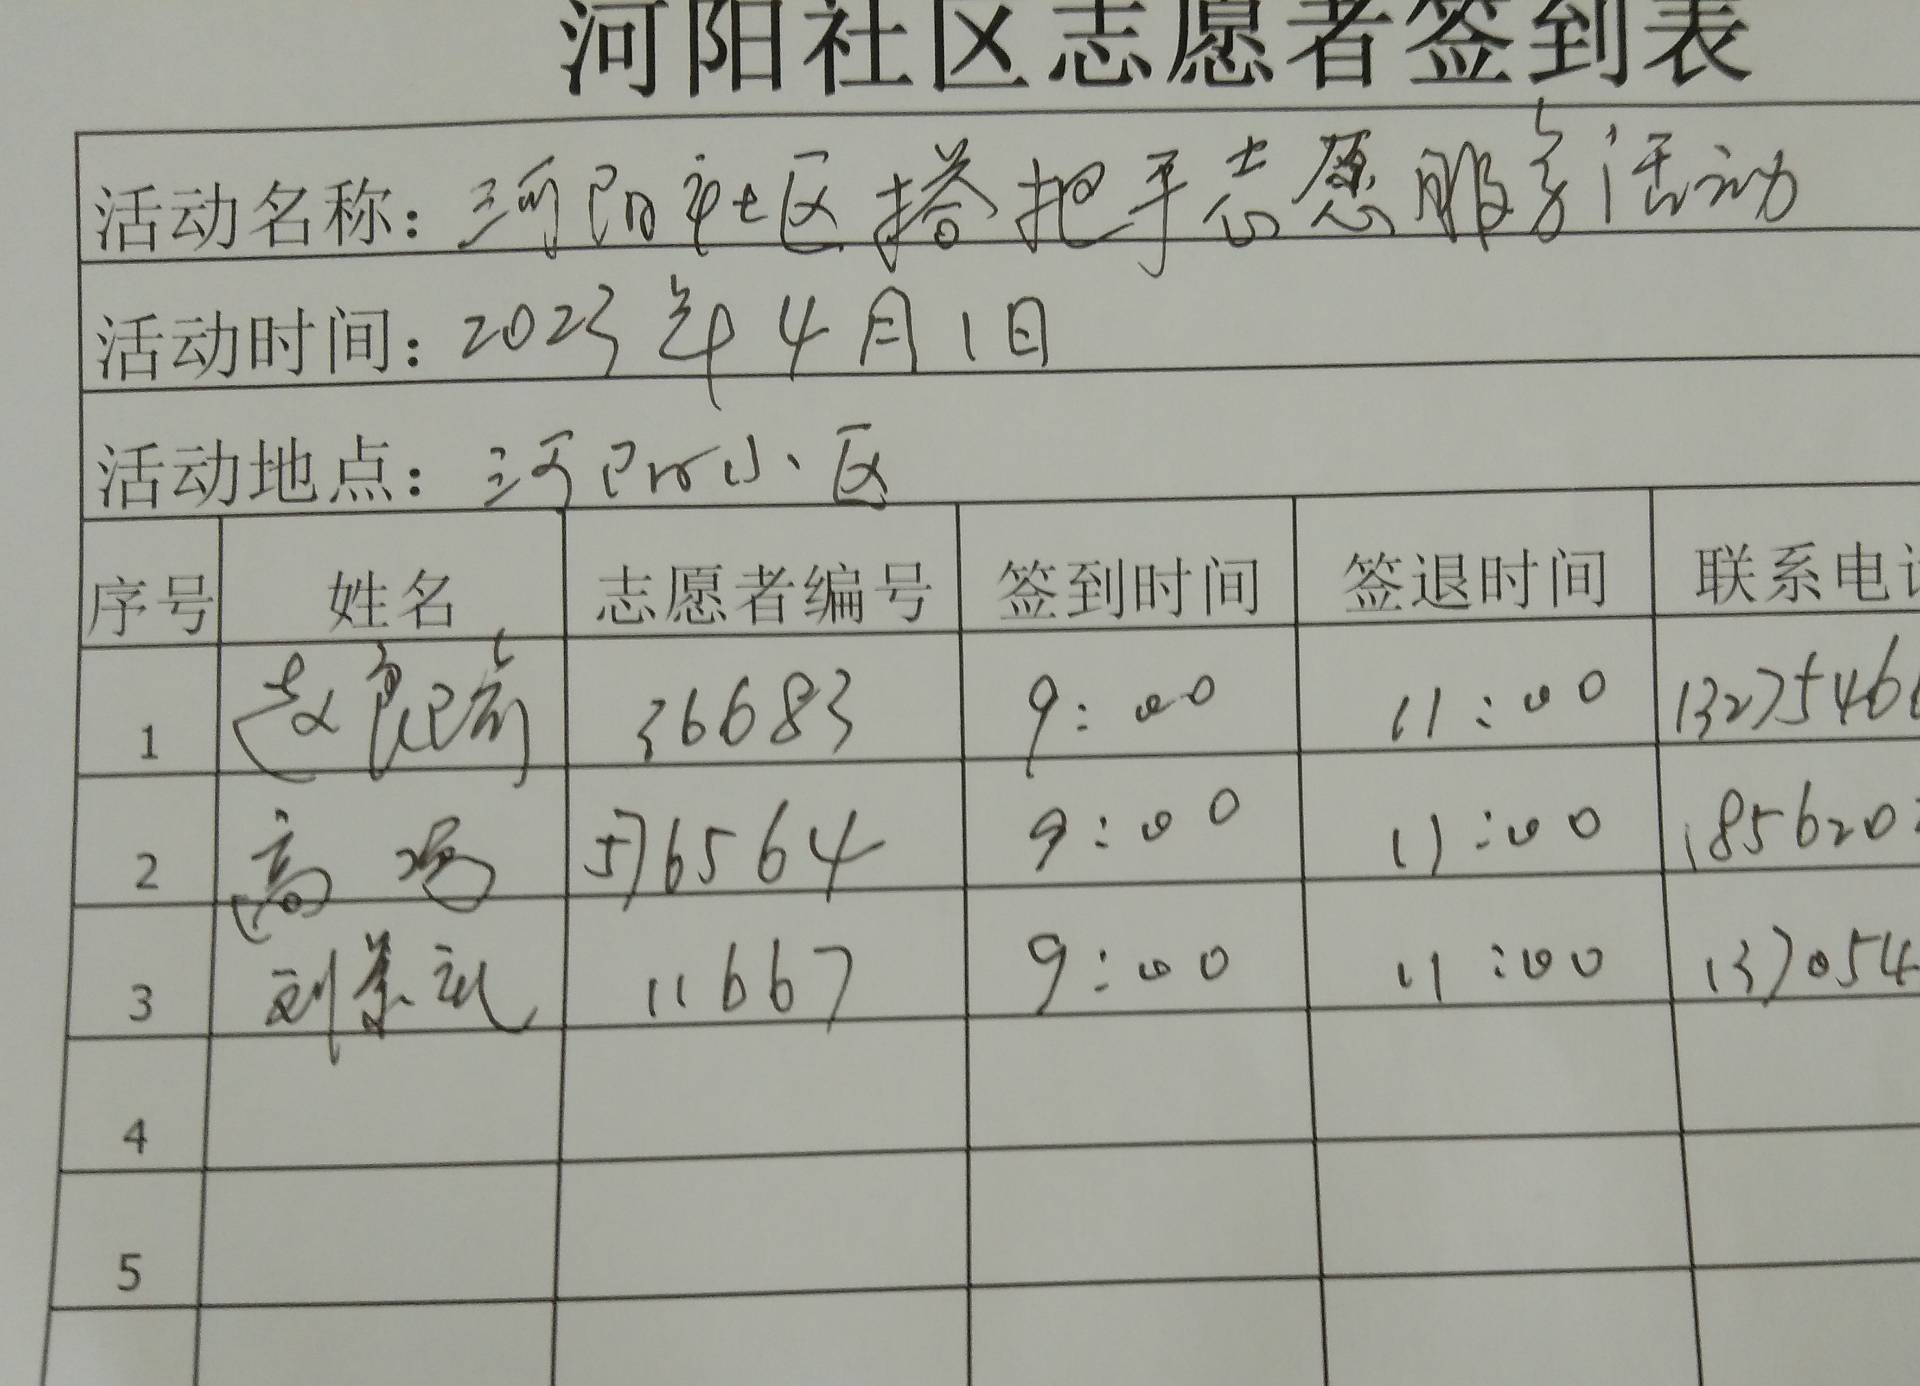 河阳社区志愿者签到表
活动名称：河阳社区搭把手志愿服务活动
活动时间：2023年4月1日
活动地点：河阳小区
序号 姓名 志愿者编号 签到时间 签退时间 联系电
1 赵 36683 9:00 11:00 1327546
2 高 576564 9:00 11:00 185620
3 刘 11667 9:00 11:00 137054
4
5